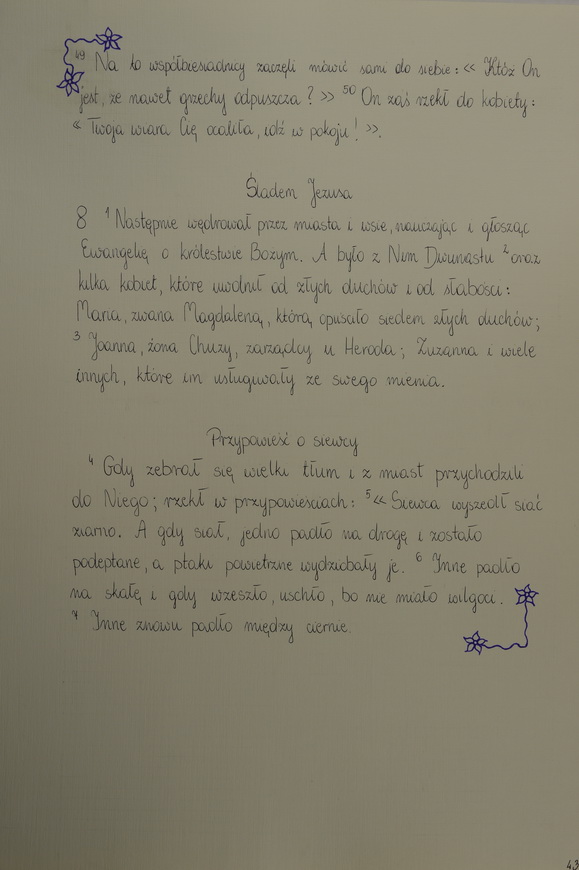 49 Na to współbiesiadnicy zaczęli mówić sami do siebie: << Któż On
jest, że nawet grzechy odpuszcza? >> 50 On zaś rzekł do kobiety:
<< Twoja wiara Cię ocaliła, idź w pokoju! >>.
Śladem Jezusa
8 1 Następnie wędrował przez miasta i wsie, nauczając i głosząc
Ewangelię o królestwie Bożym. A było z Nim Dwunastu 2 oraz
kilka kobiet, które uwolnił od złych duchów i od słabości:
Maria, zwana Magdaleną, którą opuściło siedem złych duchów;
3 Joanna, żona Chuzy, zarządcy u Heroda; Zuzanna i wiele
innych, które im usługiwały ze swego mienia.
Przypowieść o siewcy
4 Gdy zebrał się wielki tłum i z miast przychodzili
do Niego; rzekł w przypowieściach: 5 << Siewca wyszedł siać
ziarno. A gdy siał, jedno padło na drogę i zostało
podeptane, a ptaki powietrzne wydziobały je. 6 Inne padło
na skałę i gdy wzeszło, uschło, bo nie miało wilgoci.
7 Inne znowu padło między ciernie.
43